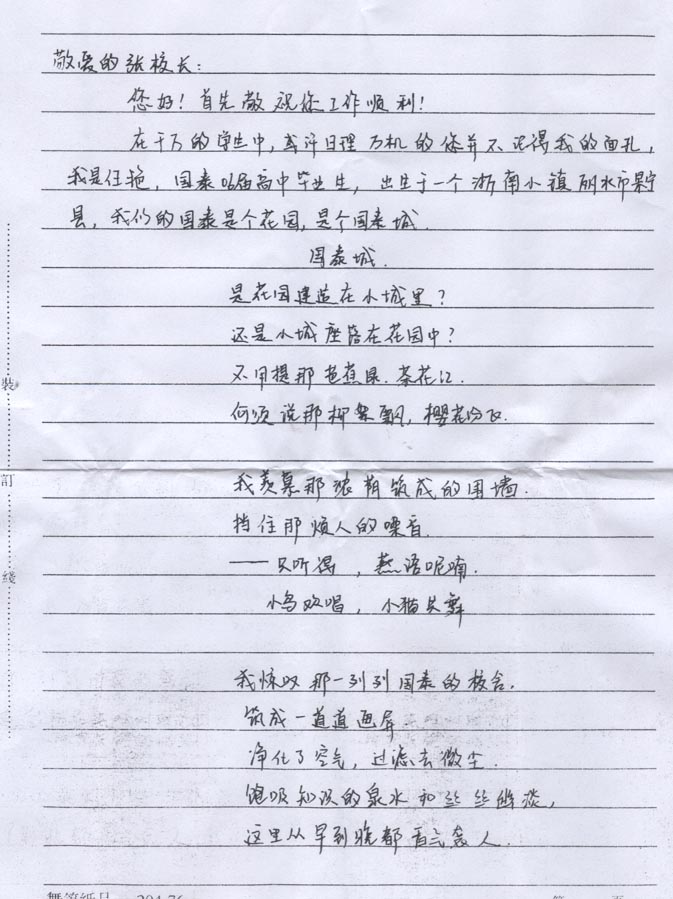 敬爱的张校长：
您好！首先敬祝您工作顺利！
在千万的学生中，或许日理万机的您并不记得我的面孔，
我是任艳，国泰06届高中毕业生，出生于一个浙南小镇丽水市
县，我们的国泰是个花园，是个国泰城.
国泰城.
是花园建造在小城里？
还是小城座落在花园中？
不用提那芭蕉绿.茶花红.
何须说那柳絮飘，樱花纷飞.
装
订
线
我羡慕那 筑成的围墙.
挡住那烦人的噪音.
——只听得，燕语呢喃.
小鸟欢唱，小猫共舞
我惊叹那一列列国泰的校舍.
筑成一道道画屏
净化了空气，过滤去微尘.
饱吸知识的泉水和丝丝幽淡，
这里从早到晚都 人.